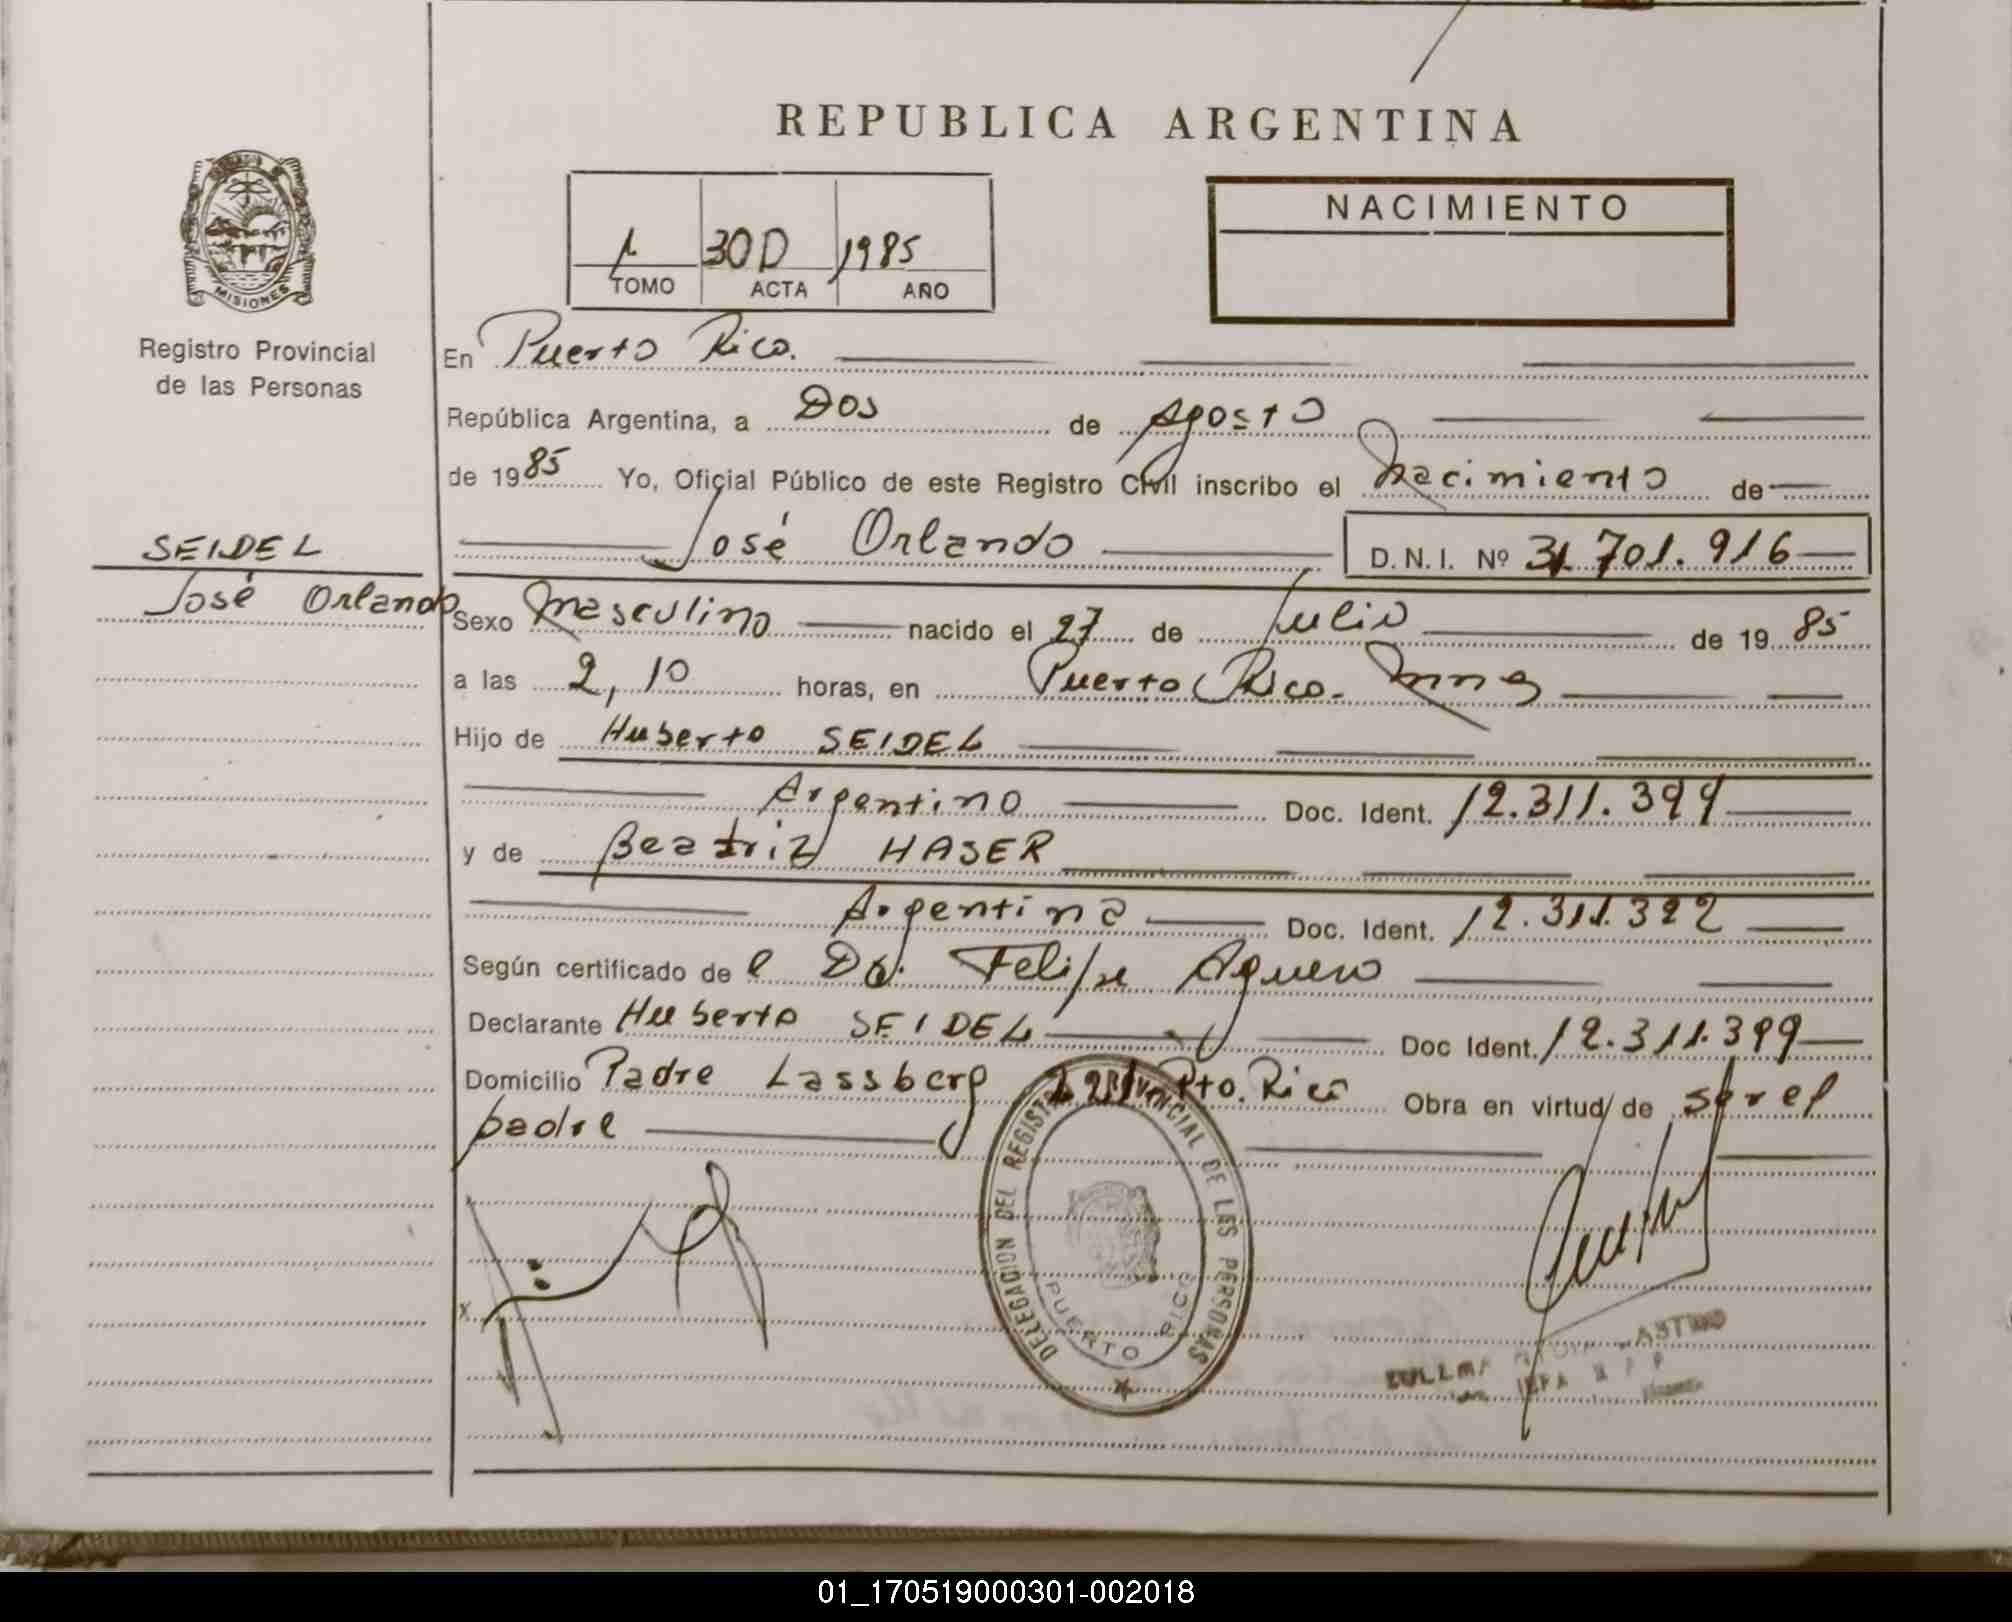 REPUBLICA ARGENTINA
MISIONES
Registro Provincial
de las Personas
SEIDEL
José Orlando
1 30D 1985
TOMO ACTA AÑO
NACIMIENTO
En Puerto Rico.
República Argentina, a Dos de Agosto
de 1985 Yo, Oficial Público de este Registro Civil inscribo el Nacimiento de
José Orlando D.N.I. Nº 31.701.916
Sexo Masculino nacido el 27 de Julio de 1985
a las 2,10 horas, en Puerto Rico. Mnes
Hijo de Huberto SEIDEL
Argentino Doc. Ident. 12.311.399
y de Beatriz HASER
Argentina Doc. Ident. 12.311.322
Según certificado de l Dr. Felipe Aguero
Declarante Huberto SEIDEL Doc Ident. 12.311.399
Domicilio Padre Lassberg Pto. Rico Obra en virtud de ser el
padre
DELEGACION DEL REGISTRO PROVINCIAL DE LAS PERSONAS
PUERTO RICO
01_170519000301-002018